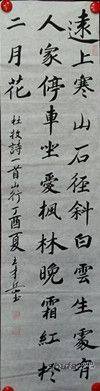 遠上寒山石徑斜白雲生處有
人家停車坐愛楓林晚霜紅於
二月花
杜牧詩一首山行丁酉夏